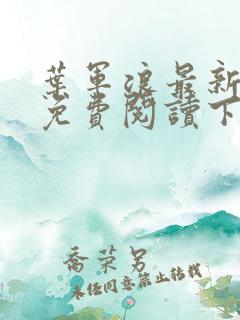 葉軍浪最新
免費閱讀下
喬榮另
未經同意禁止轉載